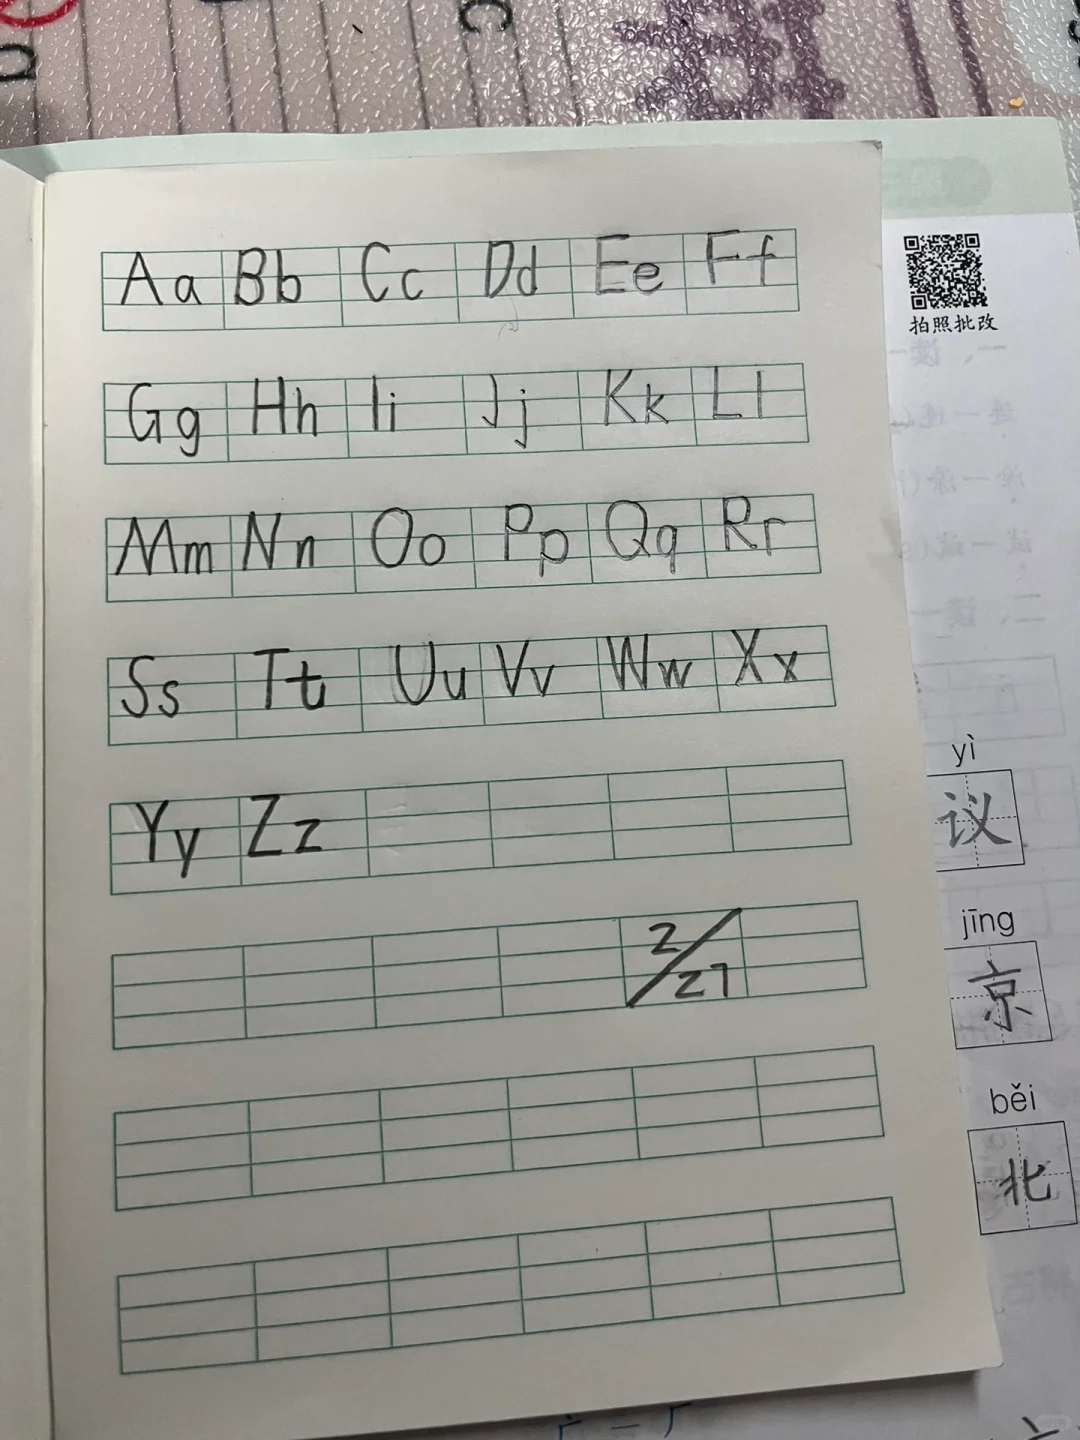 Aa Bb Cc Dd Ee Ff
Gg Hh Ii Jj Kk Ll
Mm Nn Oo Pp Qq Rr
Ss Tt Uu Vv Ww Xx
Yy Zz
2/27
拍照批改
yì
议
jīng
京
běi
北